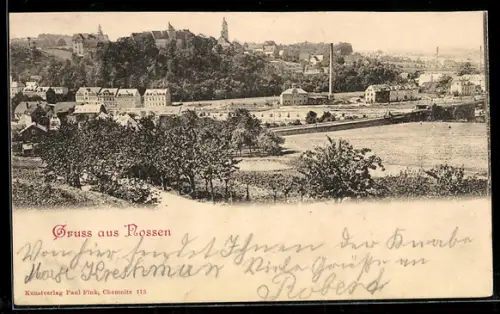 Gruss aus Nossen
Von hier sendet Ihnen der Knabe
Viele Grüße an
Robert
Kunstverlag Paul Fink, Chemnitz 113